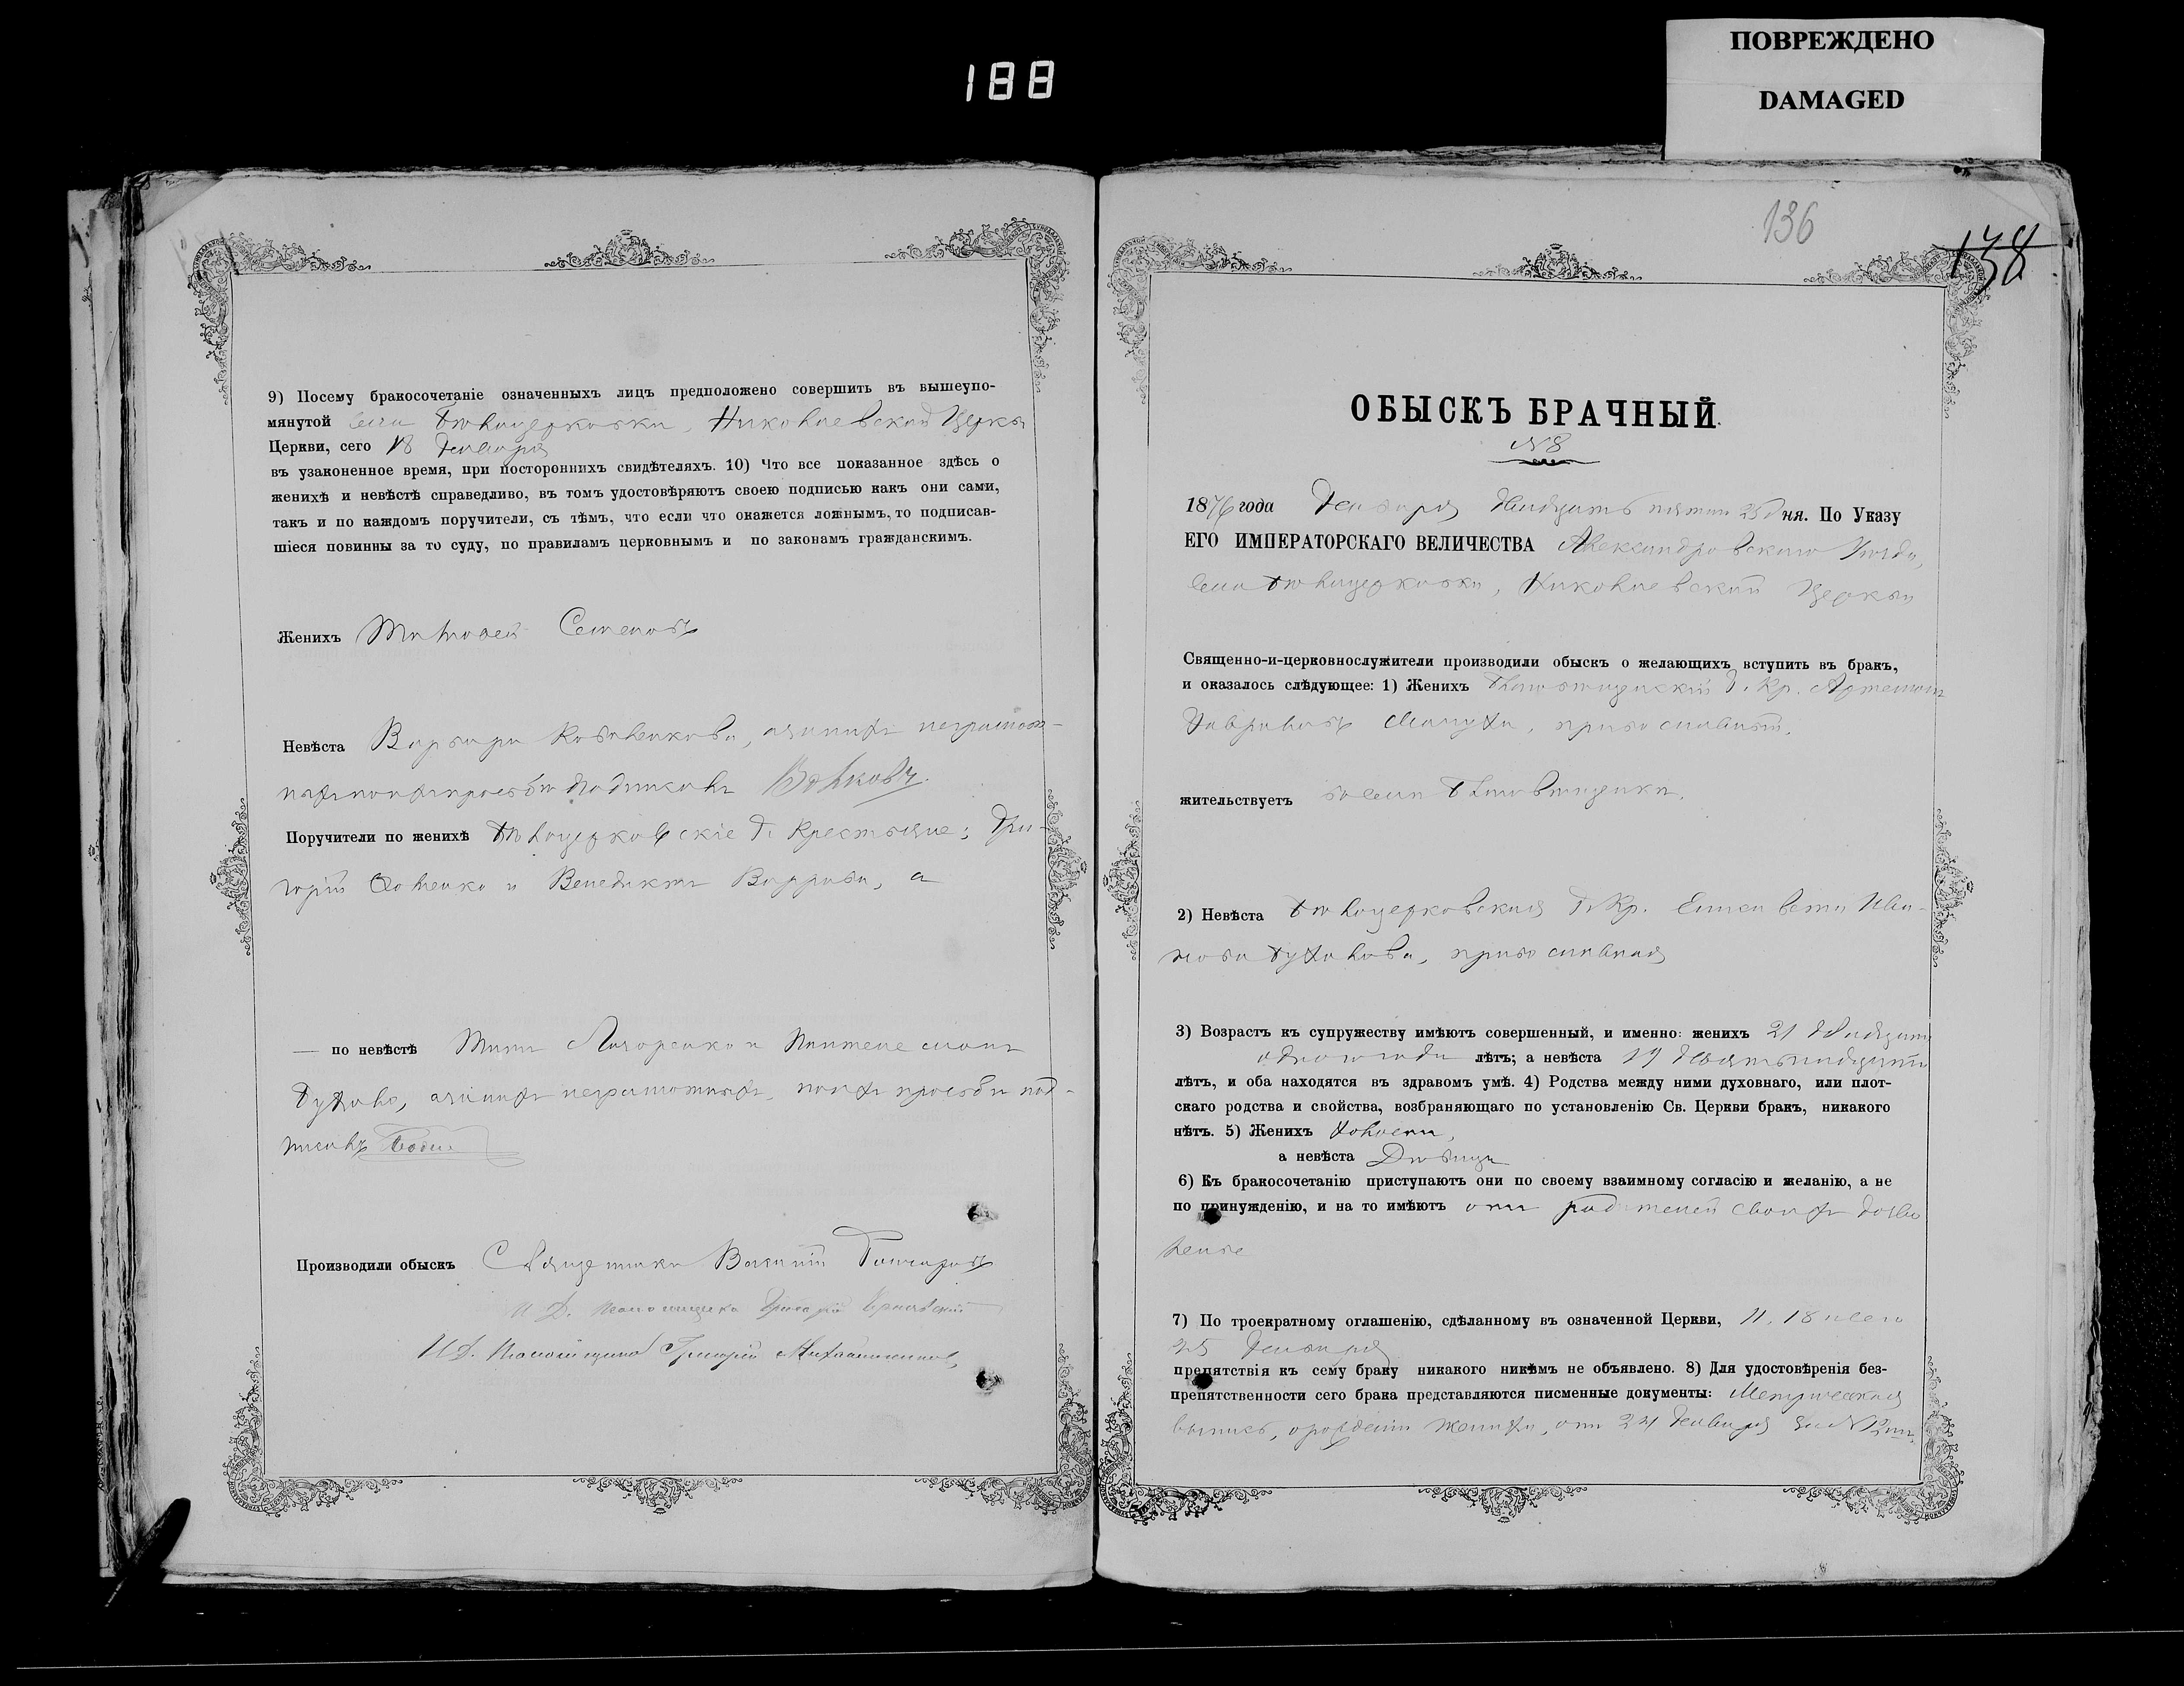 188
ПОВРЕЖДЕНО
DAMAGED
9) Посему бракосочетаніе означенныхъ лицъ предположено совершить въ вышеупо-
мянутой села Бѣлоцерковки, Николаевской Церкви
Церкви, сего 18 Генваря
въ узаконенное время, при постороннихъ свидѣтеляхъ. 10) Что все показанное здѣсь о
женихѣ и невѣстѣ справедливо, въ томъ удостовѣряютъ своею подписью какъ они сами,
такъ и по каждомъ поручители, съ тѣмъ, что если что окажется ложнымъ, то подписав-
шіеся повинны за то суду, по правиламъ церковнымъ и по законамъ гражданскимъ.
Женихъ Тимофей Семеновъ
Невѣста Варвара, а за нихъ неграмот-
ныхъ по ихъ прозьбѣ подписалъ Волковъ.
Поручители по женихѣ Бѣлоцерковскіе Г. Крестьяне: Гри-
горій и Венедиктъ, а
— по невѣстѣ Титъ и Пантелеймонъ
а за нихъ неграмотныхъ, по ихъ прозьбѣ под-
писалъ
Производили обыскъ Священникъ Василій Гончаровъ
И. Д. Псаломщика Григорій
И. Д. Псаломщика Григорій
136
138
ОБЫСКЪ БРАЧНЫЙ.
№ 8
1876 года Генваря двадцать пятаго 25 дня. По Указу
ЕГО ИМПЕРАТОРСКАГО ВЕЛИЧЕСТВА Александровскаго Уѣзда,
села Бѣлоцерковки, Николаевской Церкви
Священно-и-церковнослужители производили обыскъ о желающихъ вступить въ бракъ,
и оказалось слѣдующее: 1) Женихъ Г. Кр. Артемонъ
Гавриловъ Мануха, православный.
жительствуетъ въ селѣ
2) Невѣста Бѣлоцерковская Г. Кр. Елисавета Ива-
нова, православная
3) Возрастъ къ супружеству имѣютъ совершенный, и именно: женихъ 21 двадцати
одного года лѣтъ; а невѣста 19 девятнадцати
лѣтъ, и оба находятся въ здравомъ умѣ. 4) Родства между ними духовнаго, или плот-
скаго родства и свойства, возбраняющаго по установленію Св. Церкви бракъ, никакого
нѣтъ. 5) Женихъ холостъ,
а невѣста Дѣвица
6) Къ бракосочетанію приступаютъ они по своему взаимному согласію и желанію, а не
по принужденію, и на то имѣютъ отъ родителей своихъ дозво
ленія
7) По троекратному оглашенію, сдѣланному въ означенной Церкви, 11, 18 и сего
25 Генваря
препятствія къ сему браку никакого никѣмъ не объявлено. 8) Для удостовѣренія без-
препятственности сего брака представляются писменные документы: Метрическая
выпись, о рожденіи жениха, отъ 24 Генваря за №